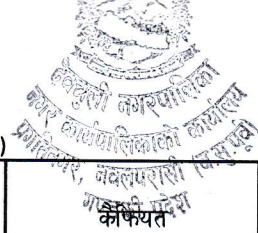 देवचुली नगरपालिका
नगर कार्यपालिकाको कार्यालय
प्रगतिनगर, नवलपरासी (ब.सु.पूर्व)
गण्डकी प्रदेश
)
कैफियत